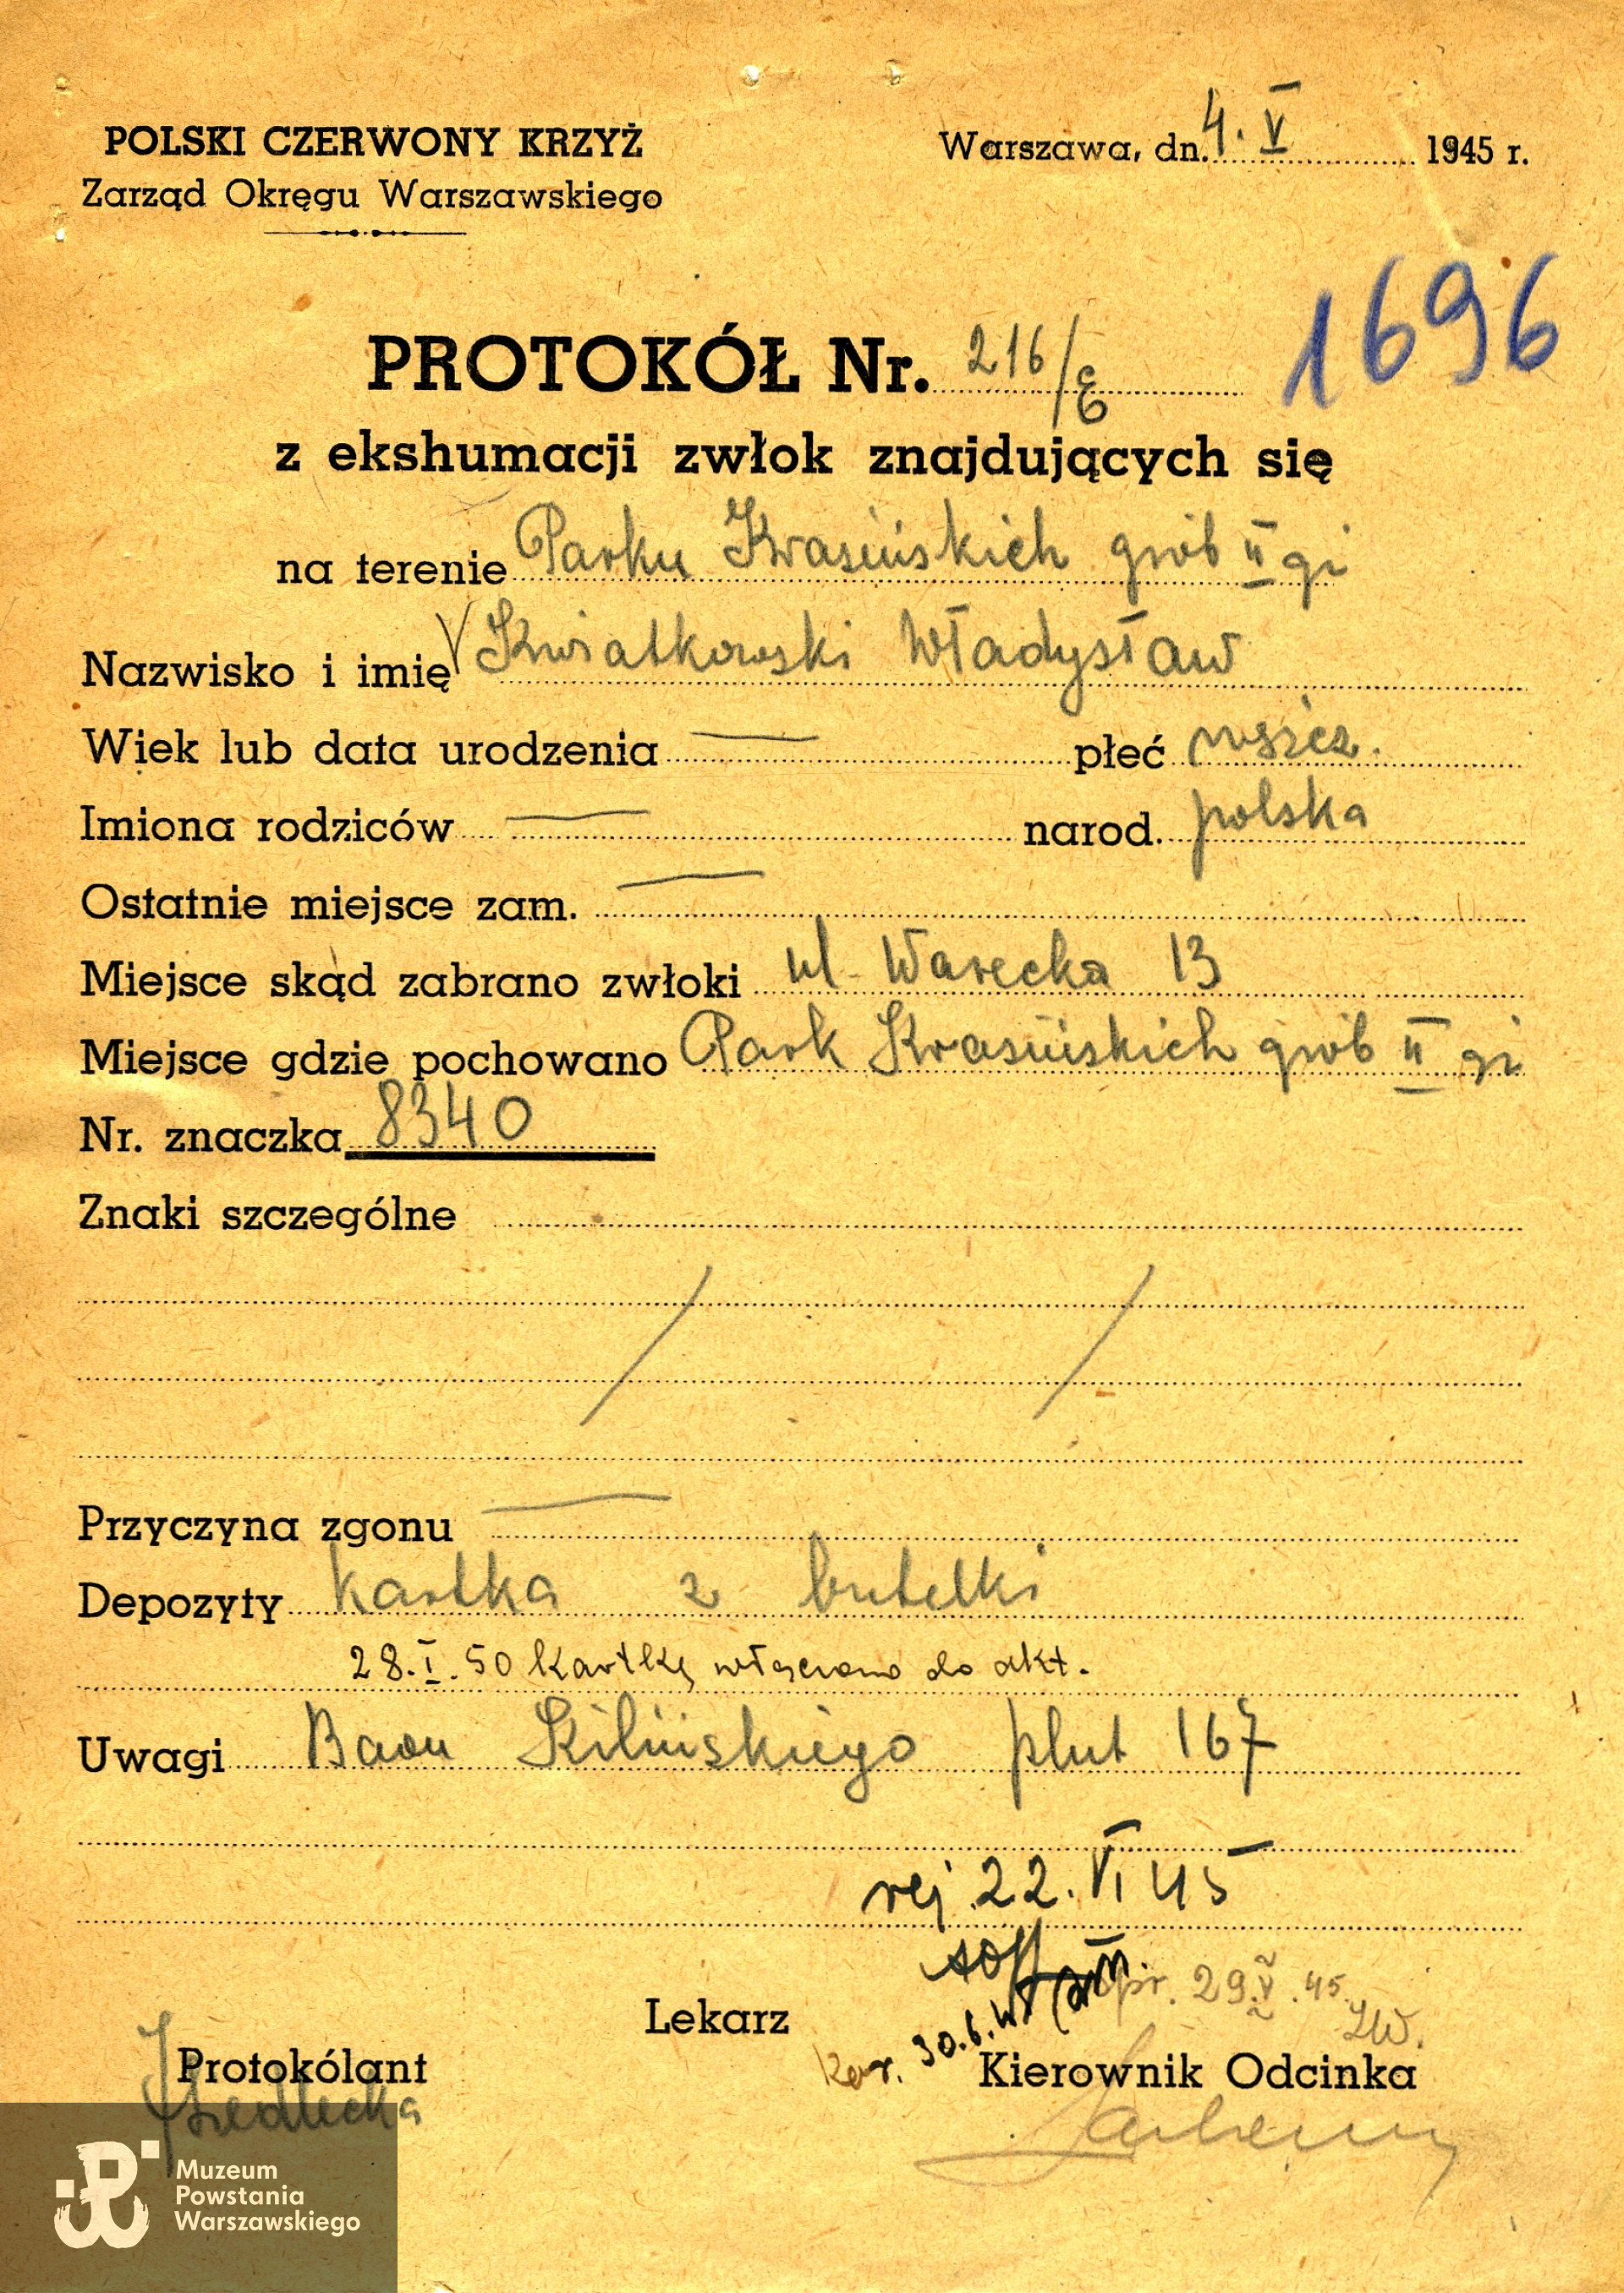 POLSKI CZERWONY KRZYŻ
Zarząd Okręgu Warszawskiego
Warszawa, dn. 4. V 1945 r.
1696
PROTOKÓŁ Nr. 216/E
z ekshumacji zwłok znajdujących się
na terenie Parku Krasińskich grób II gi
Nazwisko i imię Kwiatkowski Władysław
Wiek lub data urodzenia — płeć męzcz.
Imiona rodziców — narod. polska
Ostatnie miejsce zam. —
Miejsce skąd zabrano zwłoki ul Warecka 13
Miejsce gdzie pochowano Park Krasińskich grób II gi
Nr. znaczka 8340
Znaki szczególne
/ /
Przyczyna zgonu —
Depozyty kartka z butelki
28.I.50 kartkę włączono do akt.
Uwagi Baon Kilińskiego plut 167
rej 22. VI 45
opr. 29.V.45.
Lekarz
30.6.45
Protokólant
Kierownik Odcinka
Siedlecka
Muzeum
Powstania
Warszawskiego